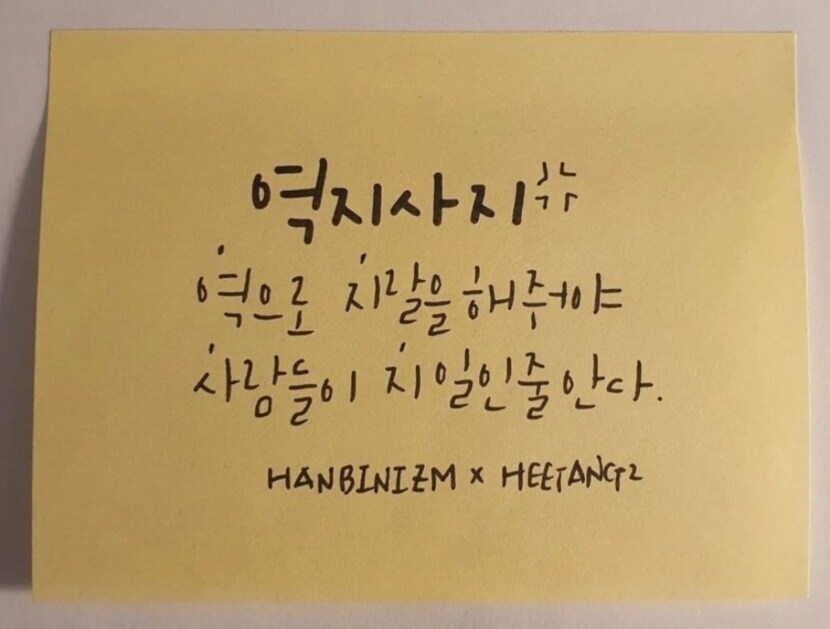 역지사지
역으로 지랄을 해줘야
사람들이 지일인줄 안다.
HANBINIZM x HEETANG2